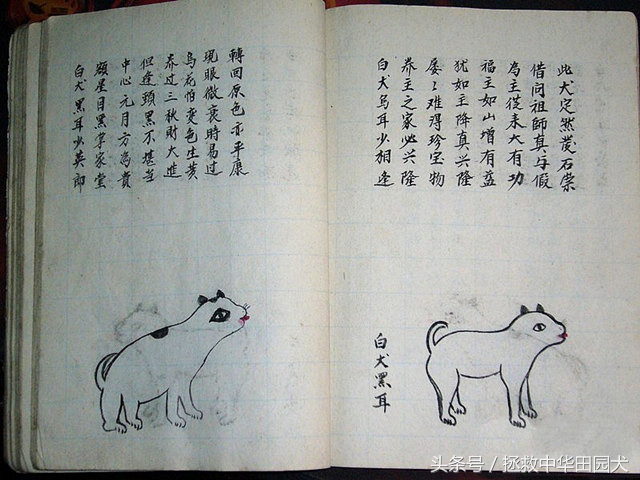 白犬黑耳少英郎
额星目黑掌家堂
中心元月方為貴
但逢頭黑不堪当
养过三秋財大進
乌花怕褒色生黄
现眼微衰時易过
轉回原色亦平康
白犬乌耳少相逢
养主之家必兴隆
屡〻难得珍宝物
犹如主降真兴隆
福主如山增有益
為主從来大有功
借问祖師真与假
此犬定然發石崇
白犬黑耳
头条号／拯救中华田园犬